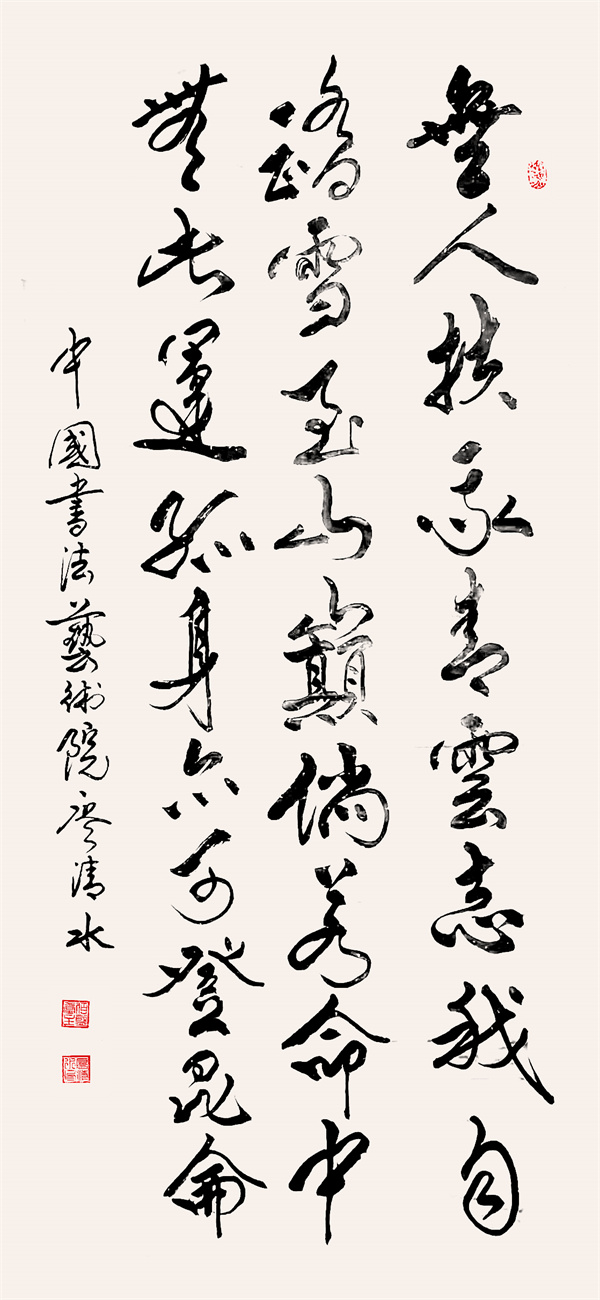 無人扶我青雲志我自
踏雪至山巔倘若命中
無此運孤身亦可登昆侖
中國書法藝術院廖清水